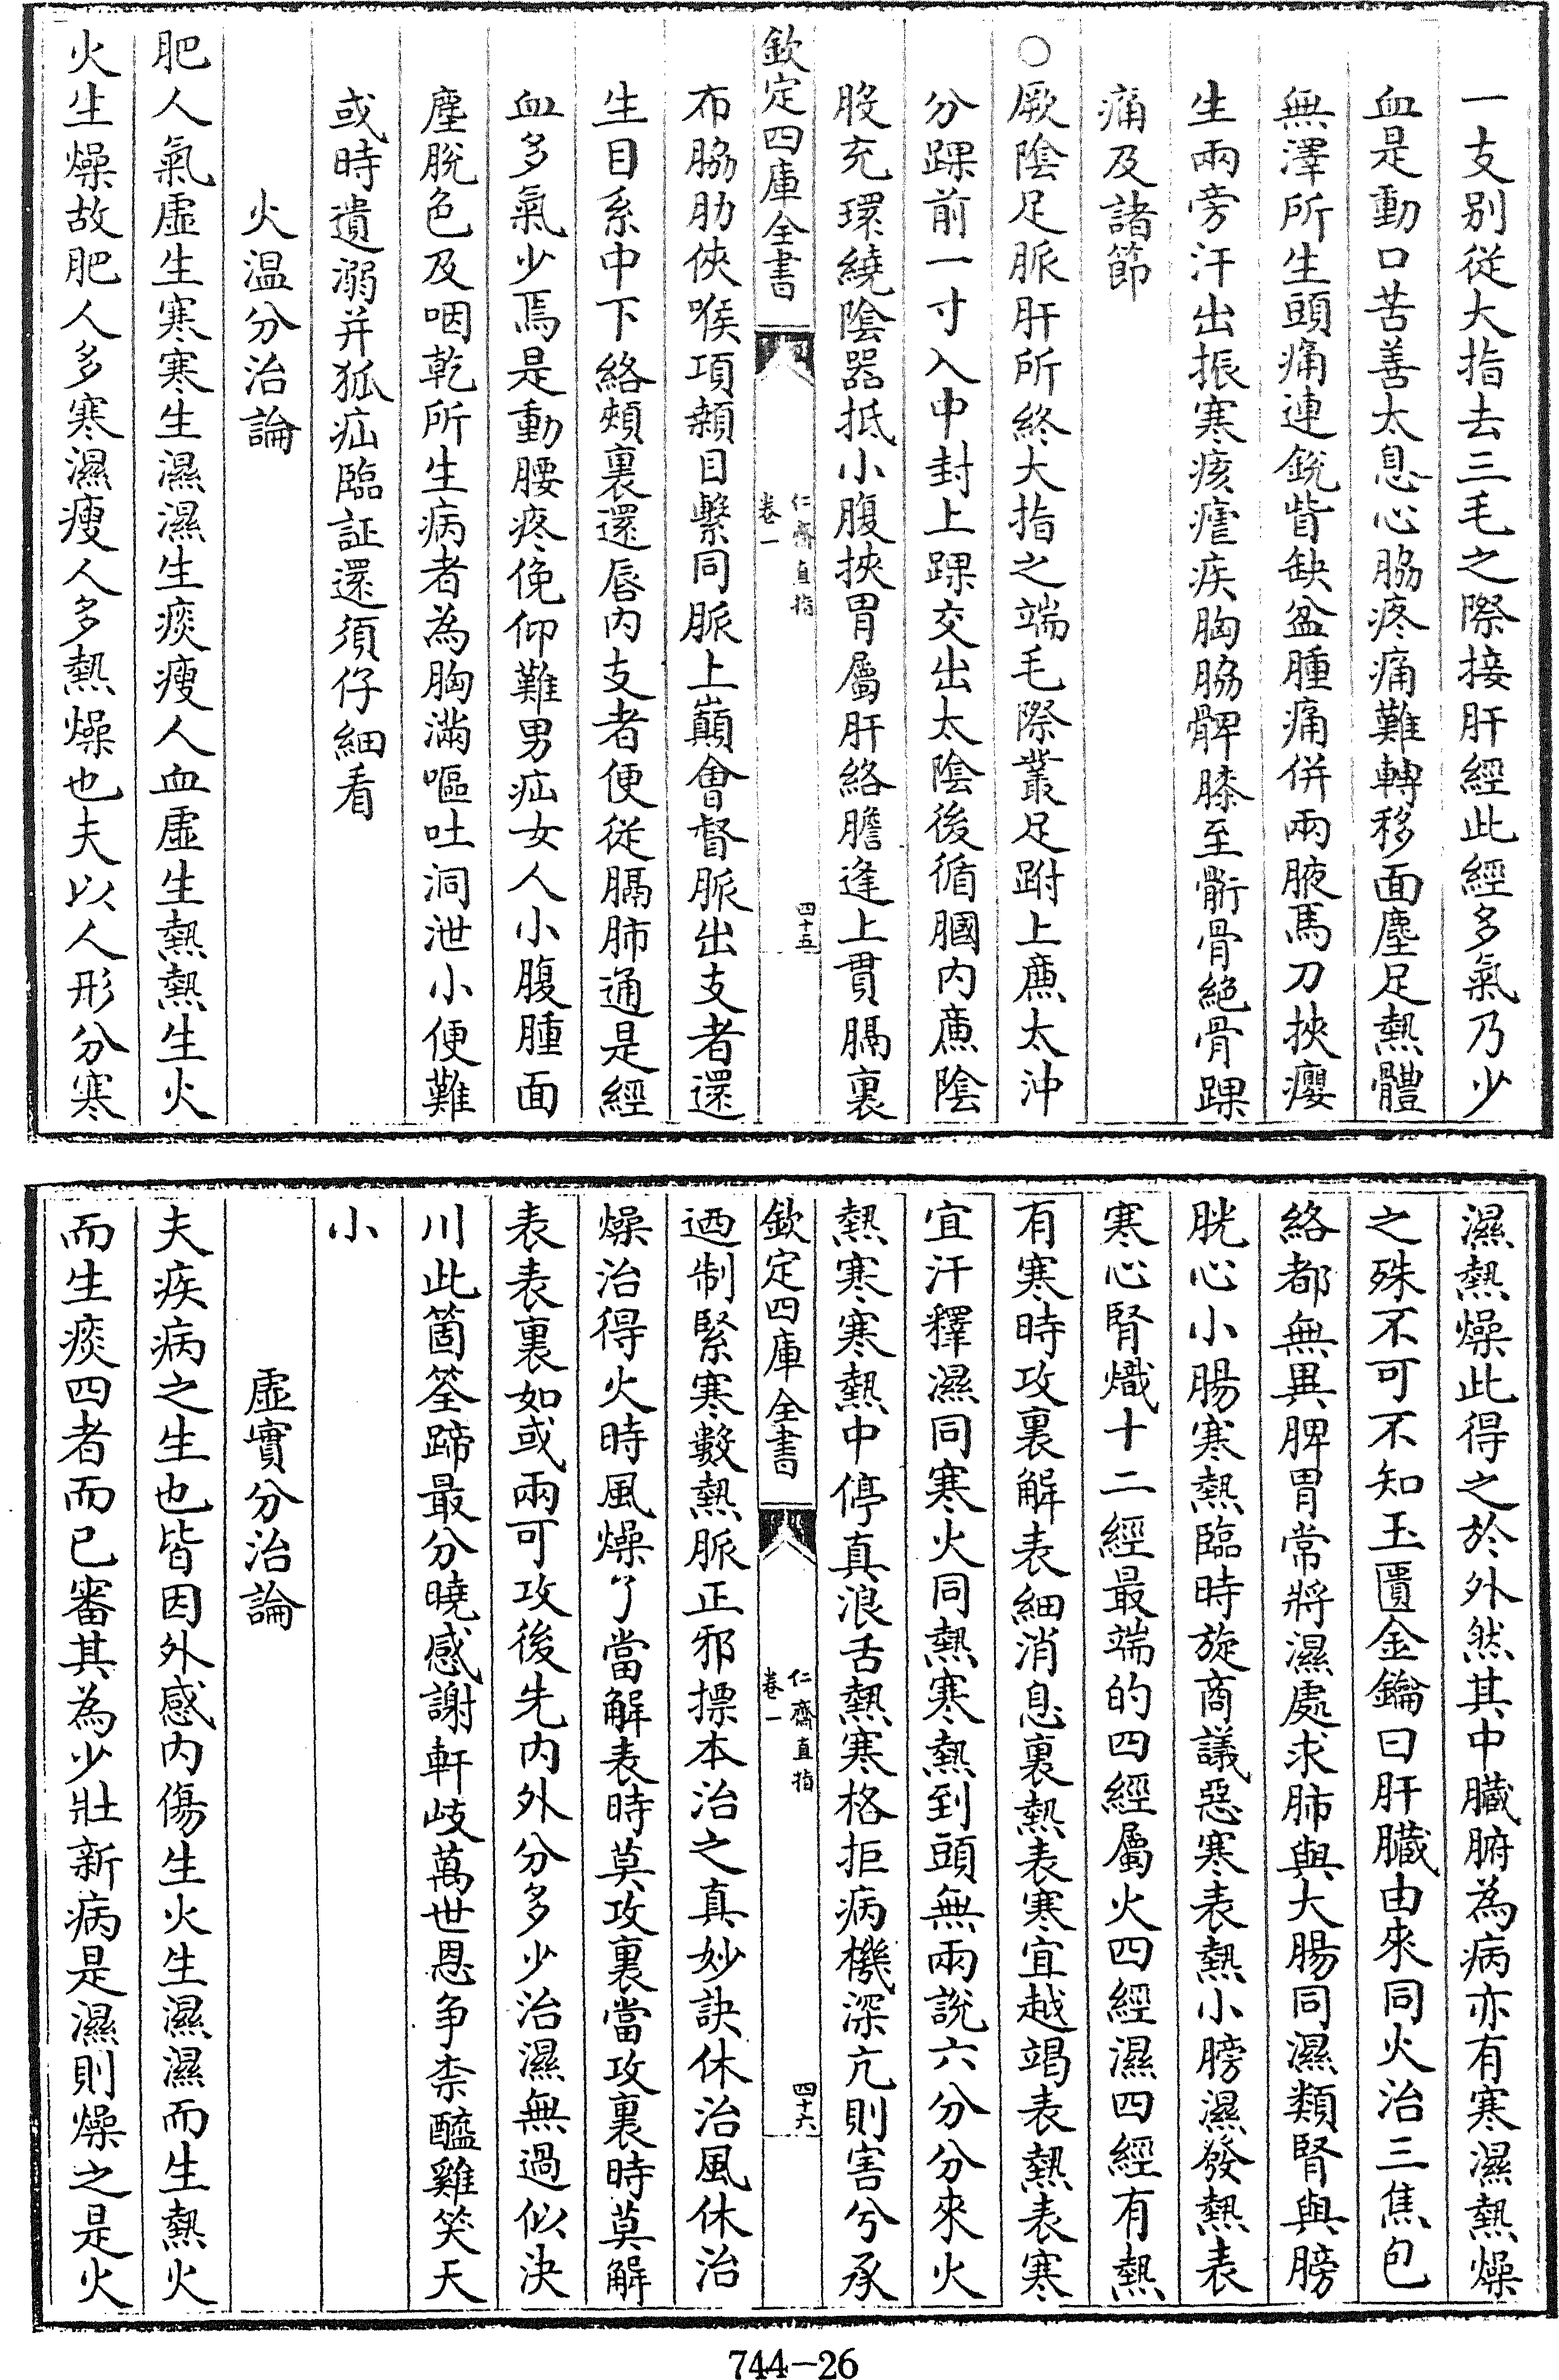 一支别從大指去三毛之際接肝經此經多氣乃少
血是動口苦善太息心脇疼痛難轉移面塵足熱體
無澤所生頭痛連銳眥缺盆腫痛併兩腋馬刀挾癭
生兩旁汗出振寒痎瘧疾胸脇髀膝至䯒骨絶骨踝
痛及諸節
○厥陰足脈肝所終大指之端毛際叢足跗上㢘太沖
分踝前一寸入中封上踝交出太陰後循膕内㢘陰
股充環繞陰器抵小腹挾胃屬肝絡膽逢上貫膈裏
欽定四庫全書
仁齋直指
卷一
四十五
布脇肋俠喉項顙目繫同脈上巔會督脈出支者還
生目系中下絡頰裏還唇内支者便從膈肺通是經
血多氣少焉是動腰疼俛仰難男疝女人小腹腫面
塵脫色及咽乾所生病者為胸滿嘔吐洞泄小便難
或時遺溺并狐疝臨証還須仔細看
火温分治論
肥人氣虛生寒寒生濕濕生痰瘦人血虛生熱熱生火
火生燥故肥人多寒濕瘦人多熱燥也夫以人形分寒
濕熱燥此得之於外然其中臟腑為病亦有寒濕熱燥
之殊不可不知玉匱金鑰曰肝臟由來同火治三焦包
絡都無異脾胃常將濕處求肺與大腸同濕類腎與膀
胱心小腸寒熱臨時旋商議惡寒表熱小膀濕發熱表
寒心腎熾十二經最端的四經屬火四經濕四經有熱
有寒時攻裏解表細消息裏熱表寒宜越竭表熱表寒
宜汗釋濕同寒火同熱寒熱到頭無兩說六分分來火
熱寒寒熱中停真浪舌熱寒格拒病機深亢則害兮承
欽定四庫全書
仁齋直指
卷一
四十六
迺制緊寒數熱脈正邪摽本治之真妙訣休治風休治
燥治得火時風燥了當解表時莫攻裏當攻裏時莫解
表表裏如或兩可攻後先内外分多少治濕無過似決
川此箇筌蹄最分曉感謝軒岐萬世恩争柰醯雞笑天
小
虛實分治論
夫疾病之生也皆因外感内傷生火生濕濕而生熱火
而生痰四者而已審其為少壯新病是濕則燥之是火
744-26